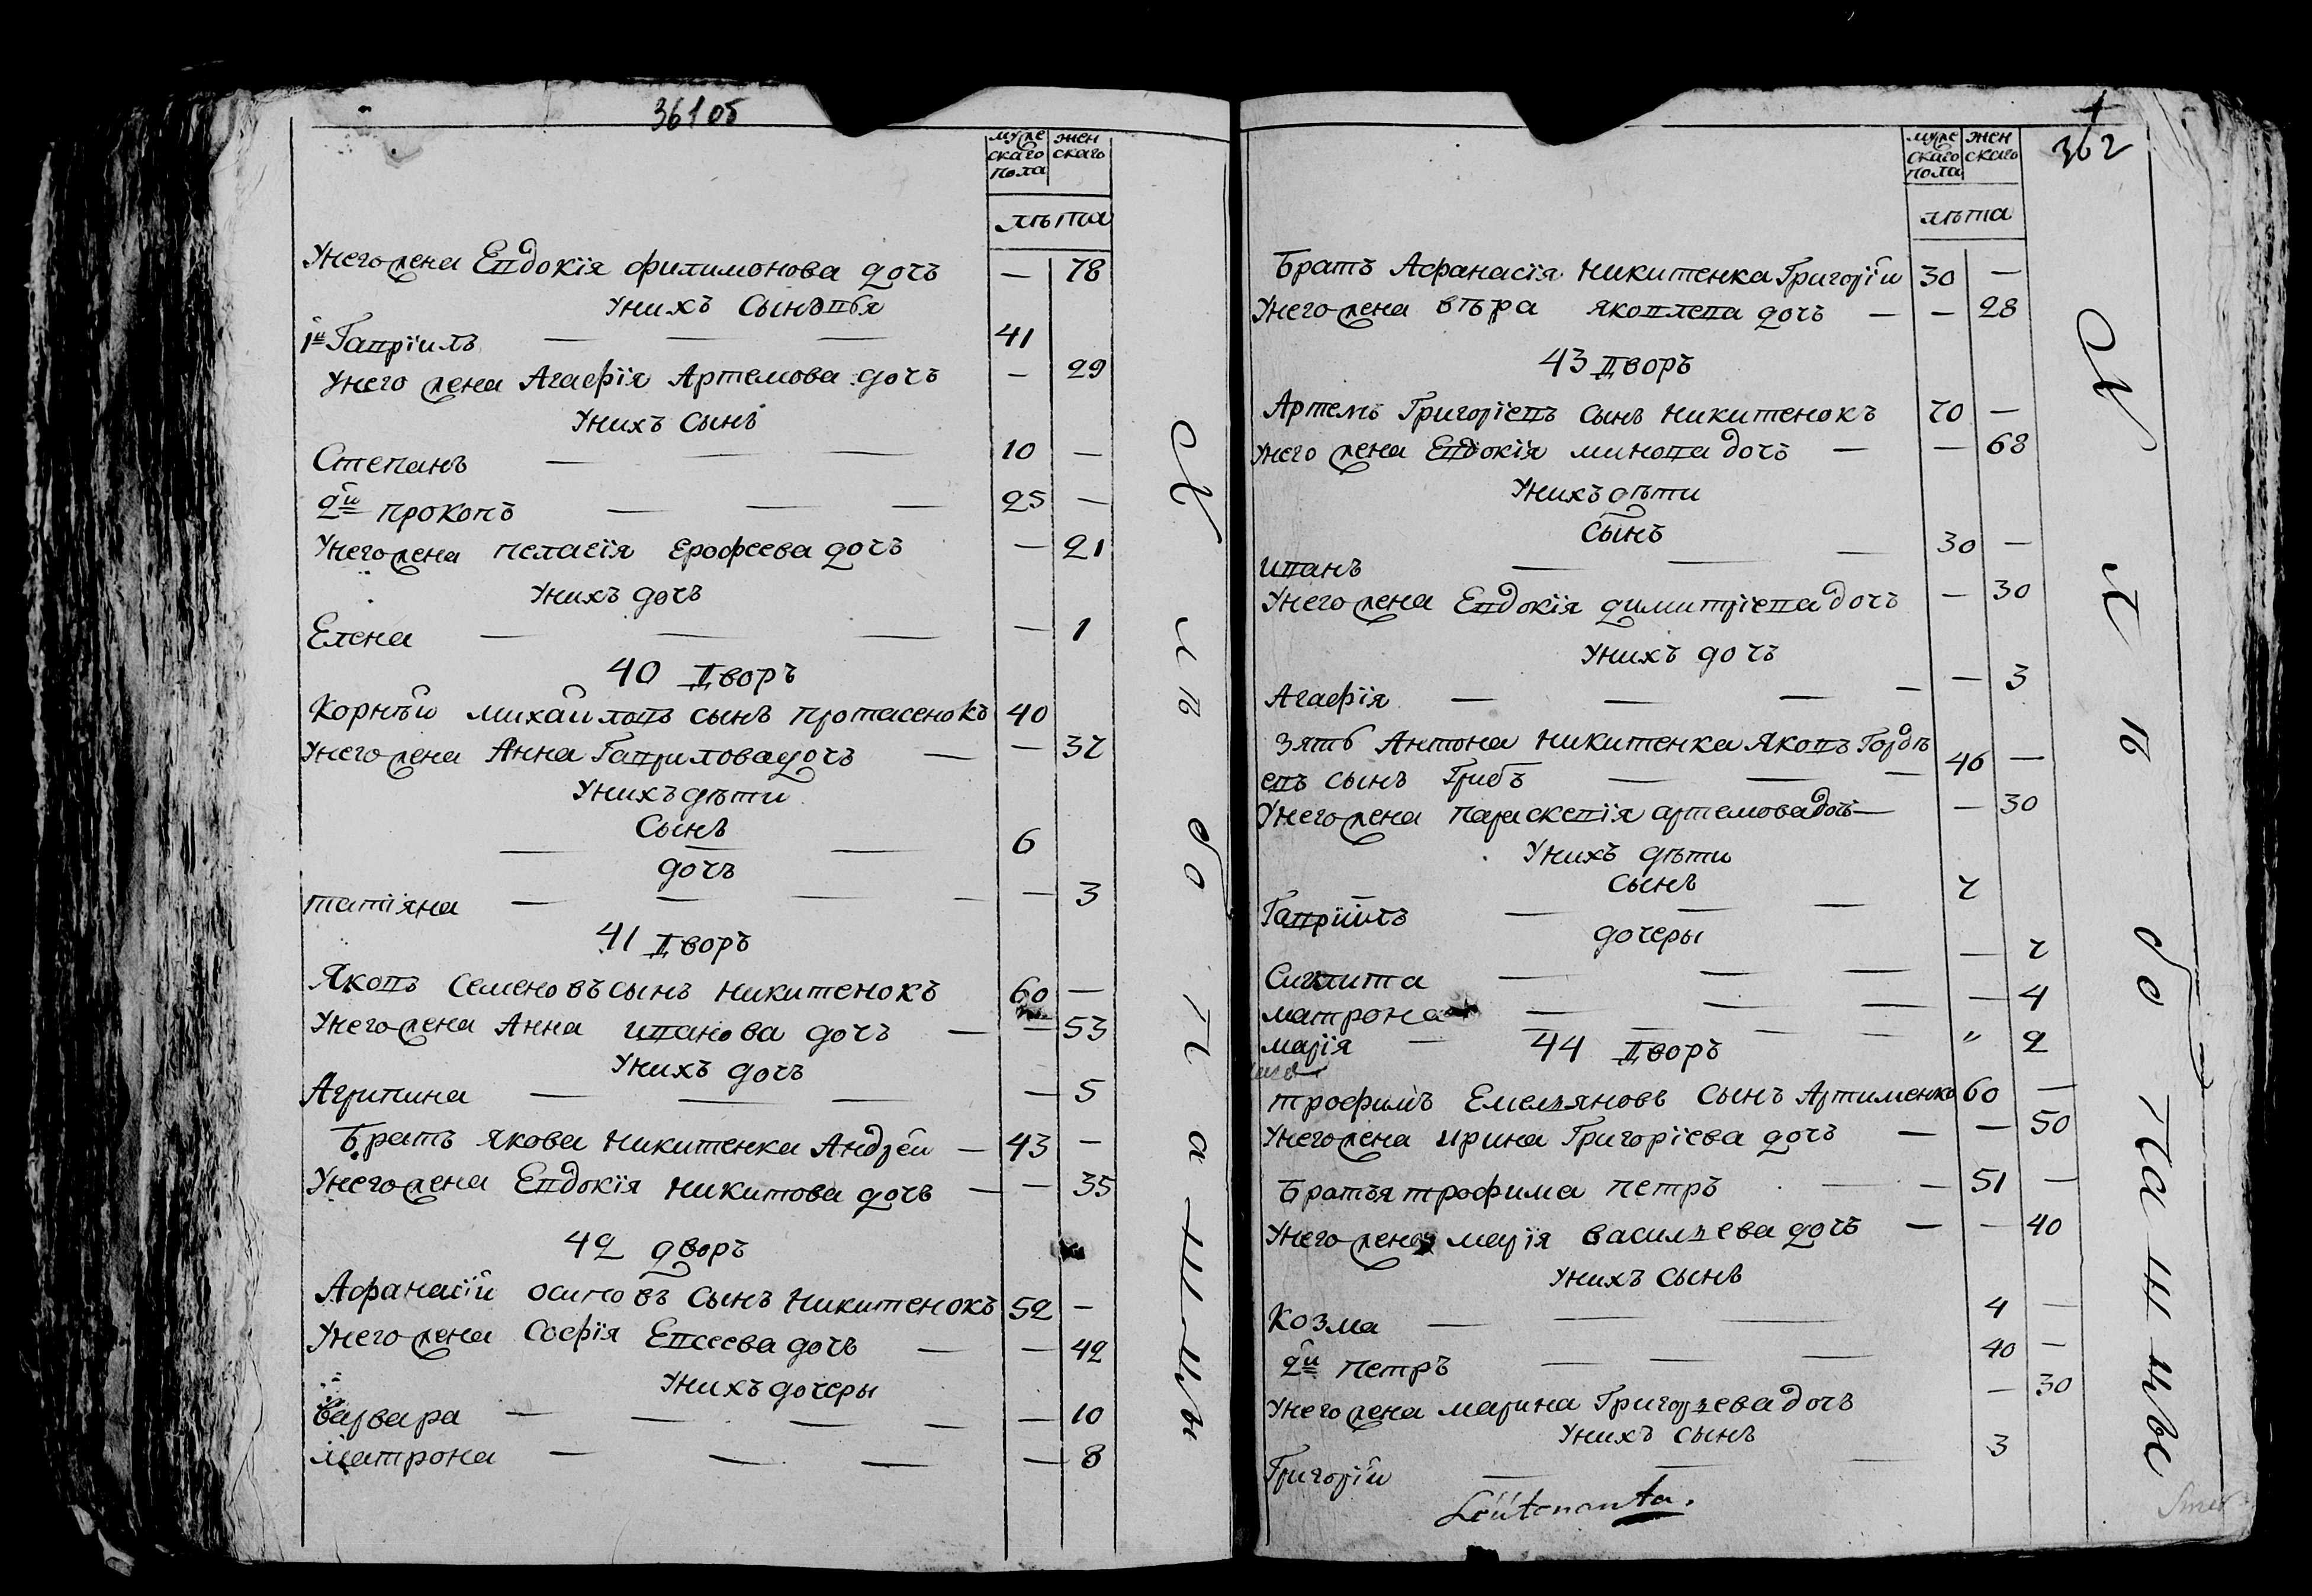 361об
мужескаго пола
женскаго
лѣта
У него жена Евдокія филимонова дочь — 78
У нихъ Сыновья
1й Гавріилъ — — — 41
У него жена Агафія Артемова дочь — 29
У нихъ Сынъ
Степанъ — — — 10 —
2й прокопъ — — — 25 —
У него жена пелагія ерофеева дочь — 21
У нихъ дочь
Елена — — — — 1
40 Дворъ
Корнѣй михайловъ сынъ протасенокъ 40
У него жена Анна Гаврилова дочь — — 37
У нихъ дѣти
Сынъ
— — — 6
дочь
татіяна — — — — — 3
41 Дворъ
Яковъ семеновъ сынъ никитенокъ 60 —
У него жена Анна иванова дочь — — 53
У нихъ дочь
Агрипина — — — — 5
Братъ якова никитенка Андрей — 43 —
У него жена Евдокія никитова дочь — — 35
42 дворъ
Афанасій осиповъ сынъ никитенокъ 52 —
У него жена Софія Евсеева дочь — — 42
У нихъ дочеры
варвара — — — — — 10
матрона — — — — 8
362
мужескаго пола
женскаго
лѣта
Братъ Афанасія никитенка Григорій 30 —
У него жена вѣра яковлева дочь — — 28
43 Дворъ
Артемъ Григоріевъ сынъ никитенокъ 70 —
У него жена Евдокія минова дочь — — 68
У нихъ дѣти
Сынъ
иванъ — — — 30 —
У него жена Евдокія димитріева дочь — 30
У нихъ дочь
Агафія — — — — — 3
зять Антона никитенка Яковъ Гордѣ
евъ сынъ Грибъ — — — 46 —
У него жена параскевія артемова дочь — — 30
У нихъ дѣти
сынъ
Гавріилъ — — — 7
дочеры
— — — — 7
матрона — — — — 4
марія — — — — " 2
44 Дворъ
трофимъ Емельяновъ сынъ Артименко 60 —
У него жена ирина Григоріева дочь — — 50
Братья трофима петръ — — 51 —
У него жена марія васильева дочь — — 40
У нихъ сынъ
Козма — — — 4 —
2й петръ — — — 40 —
У него жена марина Григорьева дочь — 30
У нихъ сынъ
Григорій — — — 3